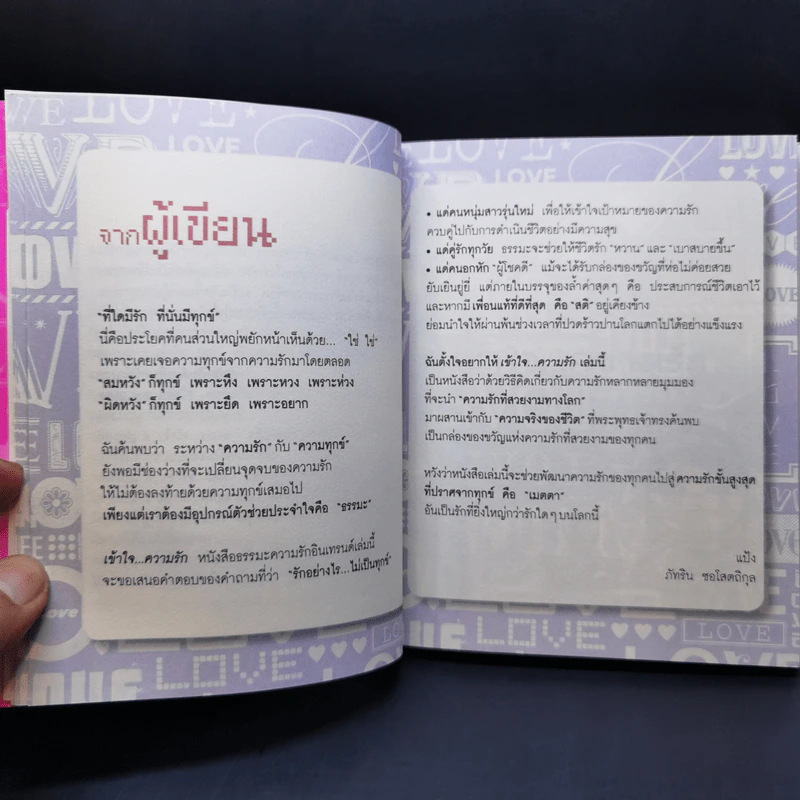 WE LOVE
LOVE
LOVE
จากผู้เขียน
"ที่ใดมีรัก ที่นั่นมีทุกข์"
นี่คือประโยคที่คนส่วนใหญ่พยักหน้าเห็นด้วย... "ใช่ ใช่"
เพราะเคยเจอความทุกข์จากความรักมาโดยตลอด
"สมหวัง" ก็ทุกข์ เพราะหึง เพราะหวง เพราะห่วง
"ผิดหวัง" ก็ทุกข์ เพราะยึด เพราะอยาก
ฉันค้นพบว่า ระหว่าง "ความรัก" กับ "ความทุกข์"
ยังพอมีช่องว่างที่จะเปลี่ยนจุดจบของความรัก
ให้ไม่ต้องลงท้ายด้วยความทุกข์เสมอไป
เพียงแต่เราต้องมีอุปกรณ์ตัวช่วยประจำใจคือ "ธรรมะ"
เข้าใจ...ความรัก หนังสือธรรมะความรักอินเทรนด์เล่มนี้
จะขอเสนอคำตอบของคำถามที่ว่า "รักอย่างไร...ไม่เป็นทุกข์"
LOVE
LOVE
• แด่คนหนุ่มสาวรุ่นใหม่ เพื่อให้เข้าใจเป้าหมายของความรัก
ควบคู่ไปกับการดำเนินชีวิตอย่างมีความสุข
• แด่คู่รักทุกวัย ธรรมะจะช่วยให้ชีวิตรัก "หวาน" และ "เบาสบายขึ้น"
• แด่คนอกหัก "ผู้โชคดี" แม้จะได้รับกล่องของขวัญที่ห่อไม่ค่อยสวย
ยับเยินยู่ยี่ แต่ภายในบรรจุของล้ำค่าสุดๆ คือ ประสบการณ์ชีวิตเอาไว้
และหากมี เพื่อนแท้ที่ดีที่สุด คือ "สติ" อยู่เคียงข้าง
ย่อมนำใจให้ผ่านพ้นช่วงเวลาที่ปวดร้าวปานโลกแตกไปได้อย่างแข็งแรง
ฉันตั้งใจอยากให้ เข้าใจ...ความรัก เล่มนี้
เป็นหนังสือว่าด้วยวิธีคิดเกี่ยวกับความรักหลากหลายมุมมอง
ที่จะนำ "ความรักที่สวยงามทางโลก"
มาผสานเข้ากับ "ความจริงของชีวิต" ที่พระพุทธเจ้าทรงค้นพบ
เป็นกล่องของขวัญแห่งความรักที่สวยงามของทุกคน
หวังว่าหนังสือเล่มนี้จะช่วยพัฒนาความรักของทุกคนไปสู่ ความรักขั้นสูงสุด
ที่ปราศจากทุกข์ คือ "เมตตา"
อันเป็นรักที่ยิ่งใหญ่กว่ารักใดๆ บนโลกนี้
แป้ง
ภัทริน ซอโสตถิกุล
LOVE
LOVE